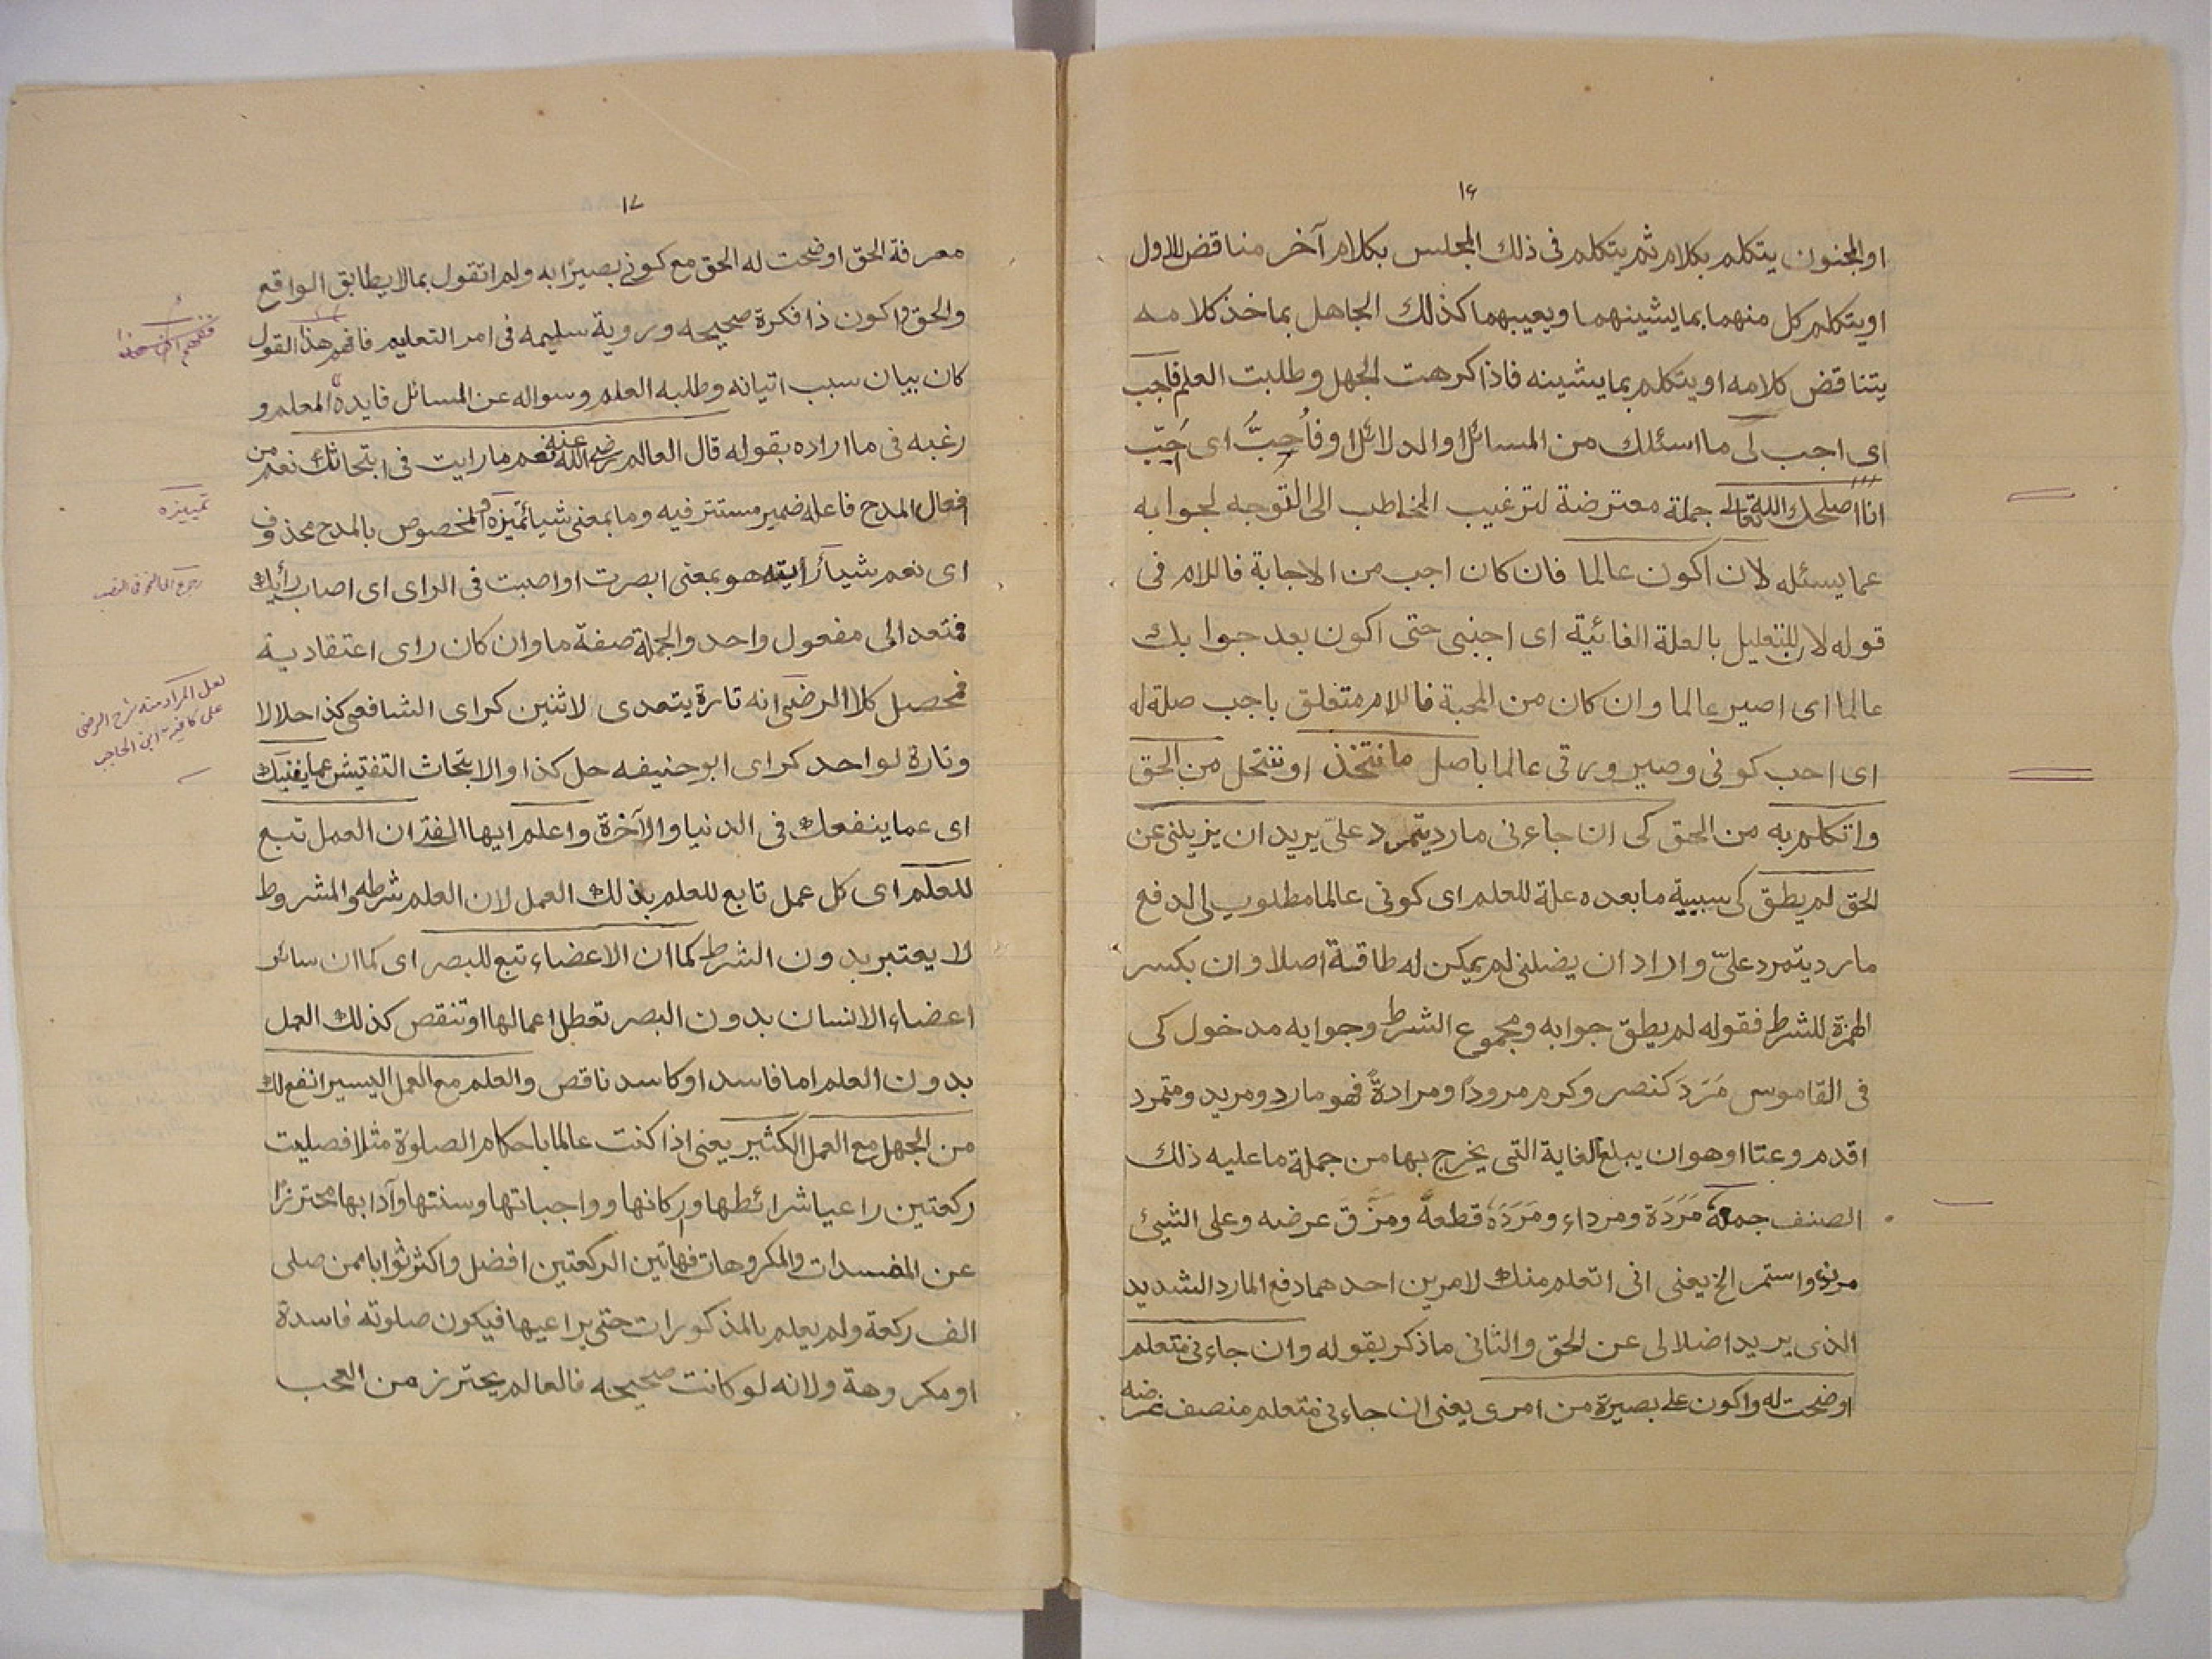 ١٦
او المجنون يتكلم بكلام ثم يتكلم فى ذلك المجلس بكلام آخر مناقض للاول
او يتكلم كل منهما بما يشينهما ويعيبهما كذلك الجاهل بما خذ كلامه
يتناقض كلامه او يتكلم بما يشينه فاذا كرهت الجهل وطلبت العلم فاجب
اى اجب لى ما اسئلك من المسائل او الدلائل او فأحِبُّ اى احب
انا اصلحك الله تعالى جملة معترضة لترغيب المخاطب الى التوجه لجوابه
عما يسئله لان اكون عالما فان كان اجب من الاجابة فاللام فى
قوله لان للتعليل بالعلة الغائية اى اجبنى حتى اكون بعد جوابك
عالما اى اصير عالما وان كان من المحبة فاللام متعلق باجب صلة له
اى احب كونى وصيرورتى عالما باصل ما نتخذ او ننتحل من الحق
واتكلم به من الحق كى ان جاءنى مارد يتمرد علىّ يريد ان يزيلنى عن
الحق لم يطق كى سببية ما بعده علة للعلم اى كونى عالما مطلوب لى لدفع
مارد يتمرد علىّ واراد ان يضلنى لم يمكن له طاقة اصلا وان بكسر
الهمزة للشرط فقوله لم يطق جوابه ومجموع الشرط وجوابه مدخول كى
فى القاموس مَرَدَ كنصر وكرم مرودًا ومرادةً فهو مارد ومريد ومتمرد
اقدم وعتا او هو ان يبلغ الغاية التى يخرج بها من جملة ما عليه ذلك
الصنف جمعه مَرَدَة ومرداء ومَرَدَهُ قطعهُ ومزّق عرضه وعلى الشيئ
مرن واستمر الخ يعنى انى اتعلم منك لامرين احدهما دفع المارد الشديد
الذى يريد اضلالى عن الحق والثانى ما ذكر بقوله وان جاءنى متعلم
اوضحت له واكون على بصيرة من امرى يعنى ان جاءنى متعلم منصف غرضه
١٧
معرفة الحق اوضحت له الحق مع كونى بصيرًا به ولم اتقول بما لا يطابق الواقع
والحق واكون ذا فكرة صحيحه وروية سليمه فى امر التعليم فافهم هذا القول
كان بيان سبب اتيانه وطلبه العلم وسواله عن المسائل فايدة المعلم و
رغبه فى ما اراده بقوله قال العالم رضى الله عنه نعم ما رايت فى ابتحاثك نعم من
افعال المدح فاعله ضمير مستتر فيه وما بمعنى شيأ تميزه والمخصوص بالمدح محذوف
تمييزه
اى نعم شيأ رأيته هو بمعنى ابصرت او اصبت فى الراى اى اصاب رأيك
فمتعد الى مفعول واحد والجملة صفة ما وان كان راى اعتقادية
فمحصل كلام الرضى انه تارة يتعدى لاثنين كراى الشافعى كذا حلالا
لعل المراد منه شرح الرضى
على كافية ابن الحاجب
وتارة لواحد كراى ابو حنيفه حل كذا والابتحاث التفتيش عما يغنيك
اى عما ينفعك فى الدنيا والآخرة واعلم ايها الفتى ان العمل تبع
للعلم اى كل عمل تابع للعلم بذلك العمل لان العلم شرطه والمشروط
لا يعتبر بدون الشرط كما ان الاعضاء تبع للبصر اى كما ان سائر
اعضاء الانسان بدون البصر تعطل اعمالها او تنقص كذلك العمل
بدون العلم اما فاسد او كاسد ناقص والعلم مع العمل اليسير انفع لك
من الجهل مع العمل الكثير يعنى اذا كنت عالما باحكام الصلوة مثلا فصليت
ركعتين راعيا شرائطها واركانها وواجباتها وسنتها وآدابها محترزًا
عن المفسدات والمكروهات فهاتين الركعتين افضل واكثر ثوابا ممن صلى
الف ركعة ولم يعلم بالمذكورات حتى يراعيها فيكون صلوته فاسدة
او مكروهة ولانه لو كانت صحيحه فالعالم يحترز من العجب